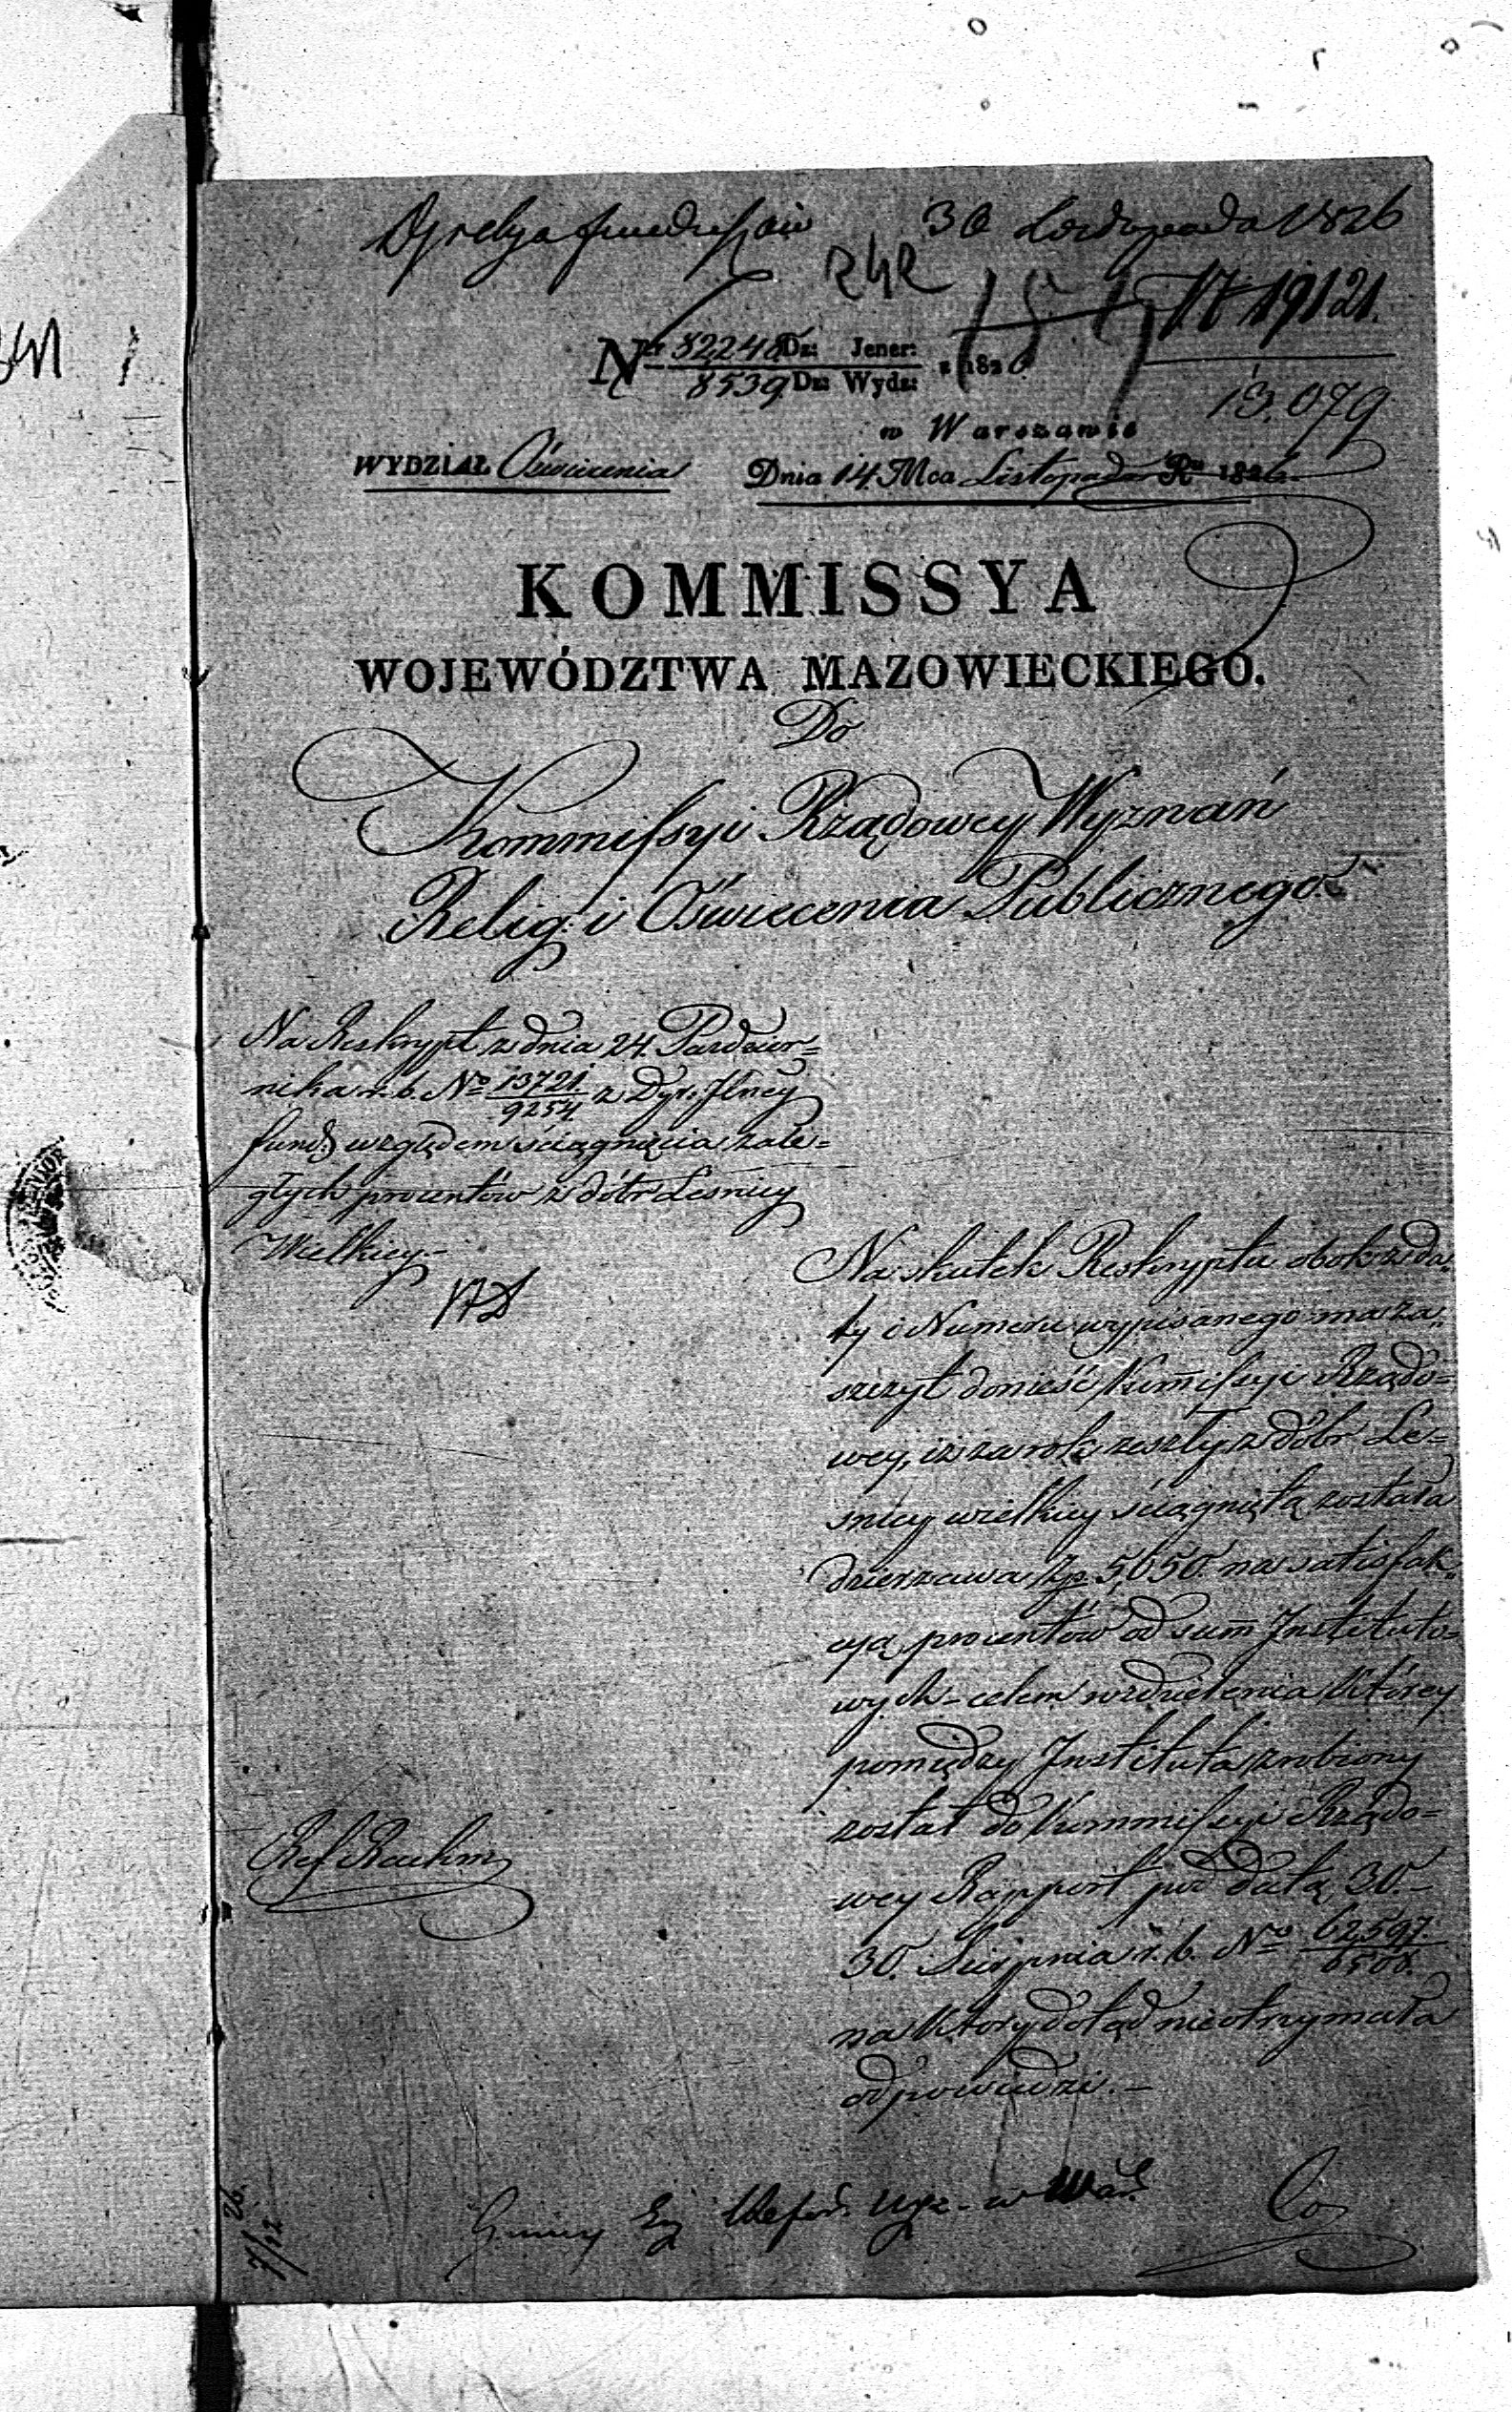 Dyrekcya funduszów 30 Listopada 1826
242
N 19121.
13.079
Nr 82248 Dz: Jener: z 1826
8539 Dz: Wydz:
w Warszawie
WYDZIAŁ Oświecenia Dnia 14. Mca Listopada Ru 1826
KOMMISSYA
WOJEWÓDZTWA MAZOWIECKIEGO.
Do
Kommissyi Rządowey Wyznań
Relig: i Oświecenia Publicznego.
Na Reskrypt z dnia 24. Paździer=
nika r. b. No 13721./9254. z Dyr: Jlney
fund: względem ściągnięcia zale=
głych procentów z dóbr Lesnicy
Wielkiey.-
Na skutek Reskryptu obok z da„
ty i Numeru wypisanego ma za„
szczyt donieść Kommissyi Rządo=
wey, iż za rok zeszły z dóbr Le=
snicy wielkiey ściągniętą została
dzierzawa Zp. 5,050. na satisfak„
cyą procentów od summ Instytuto=
wych - celem rozdzielenia którey
pomiędzy Instituta zrobiony
został do Kommissyi Rządo=
wey Rapport pod datą 30.-
30. Sierpnia r. b. No 62,597./6500.
na który dotąd nieotrzymała
odpowiedzi.-
7/12 26.